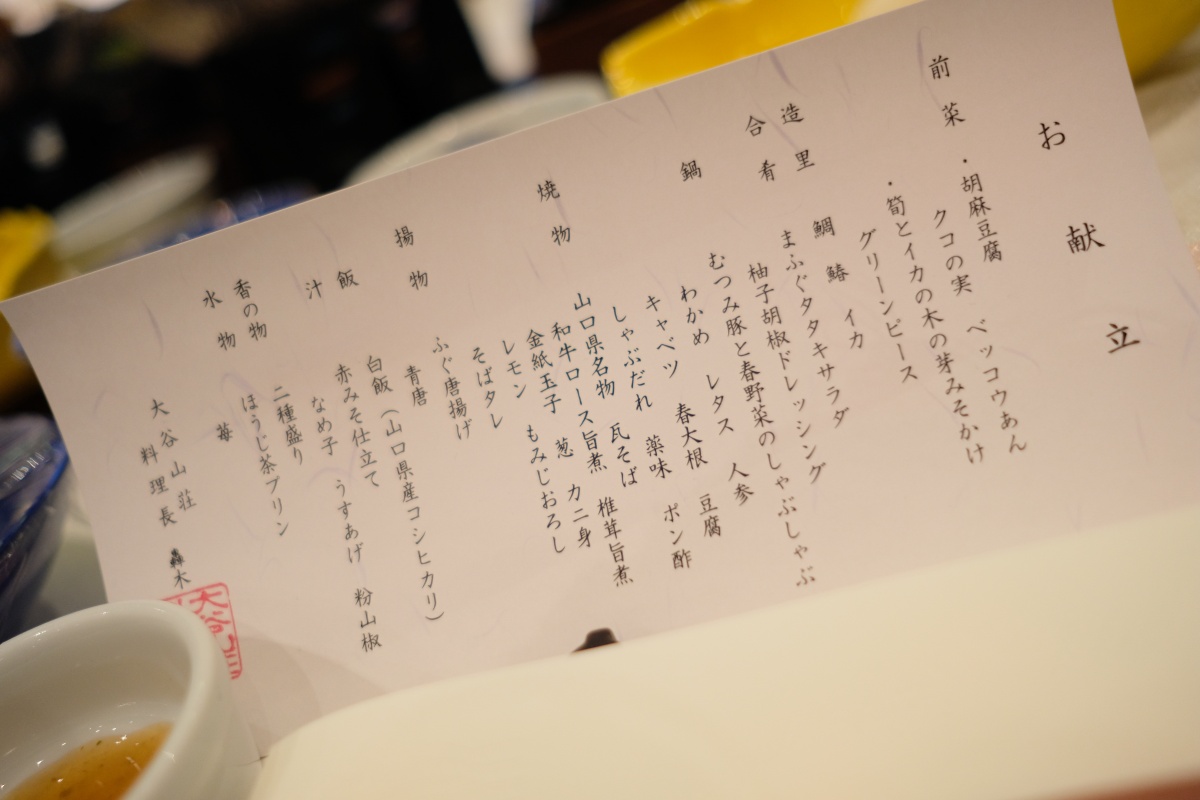 お献立
前菜
・胡麻豆腐 ベッコウあん
クコの実
・筍とイカの木の芽みそかけ
グリーンピース
造里
鯛 鰆 イカ
合肴
まふぐタタキサラダ
柚子胡椒ドレッシング
鍋
むつみ豚と春野菜のしゃぶしゃぶ
わかめ レタス 人参
キャベツ 春大根 豆腐
しゃぶだれ 薬味 ポン酢
焼物
山口県名物 瓦そば
和牛ロース旨煮 椎茸旨煮
金紙玉子 葱 カニ身
レモン もみじおろし
そばタレ
揚物
ふぐ唐揚げ
青唐
飯
白飯(山口県産コシヒカリ)
汁
赤みそ仕立て
なめ子 うすあげ 粉山椒
香の物
二種盛り
水物
ほうじ茶プリン
苺
大谷山荘
料理長 轟木
大谷山